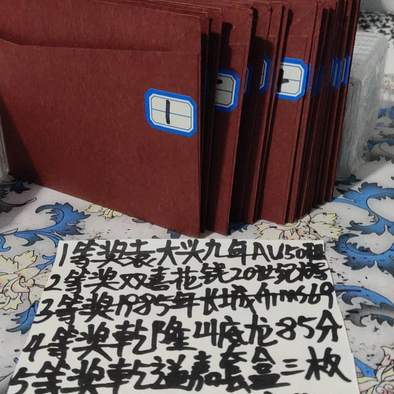 1
1等奖袁大头九年AU50
2等奖双喜花钱20
3等奖1985年长城币ms69
4等奖乾隆 龙85分
5等奖乾 嘉套盒三枚